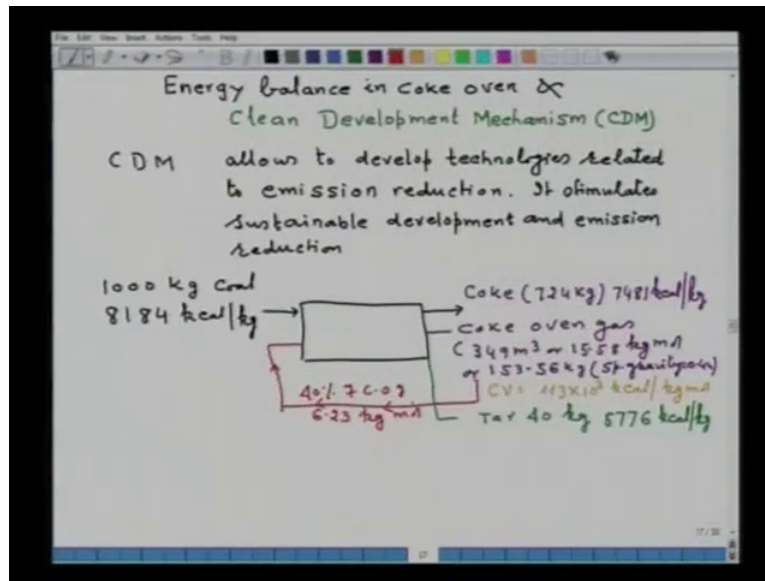 File Edit View Insert Actions Tools Help
Energy balance in coke oven &
Clean Development Mechanism (CDM)
CDM allows to develop technologies related
to emission reduction. It stimulates
sustainable development and emission
reduction
1000 kg Coal
8184 kcal/kg
Coke (724 kg) 7481 kcal/kg
Coke oven gas
( 349 m³ or 15.58 kg mol
or 153.56 kg (Sp. gravity
CV = 113×10³ kcal/kg mol
40% 7 C.O.g
6.23 kg mol
Tar 40 kg 5776 kcal/kg
17